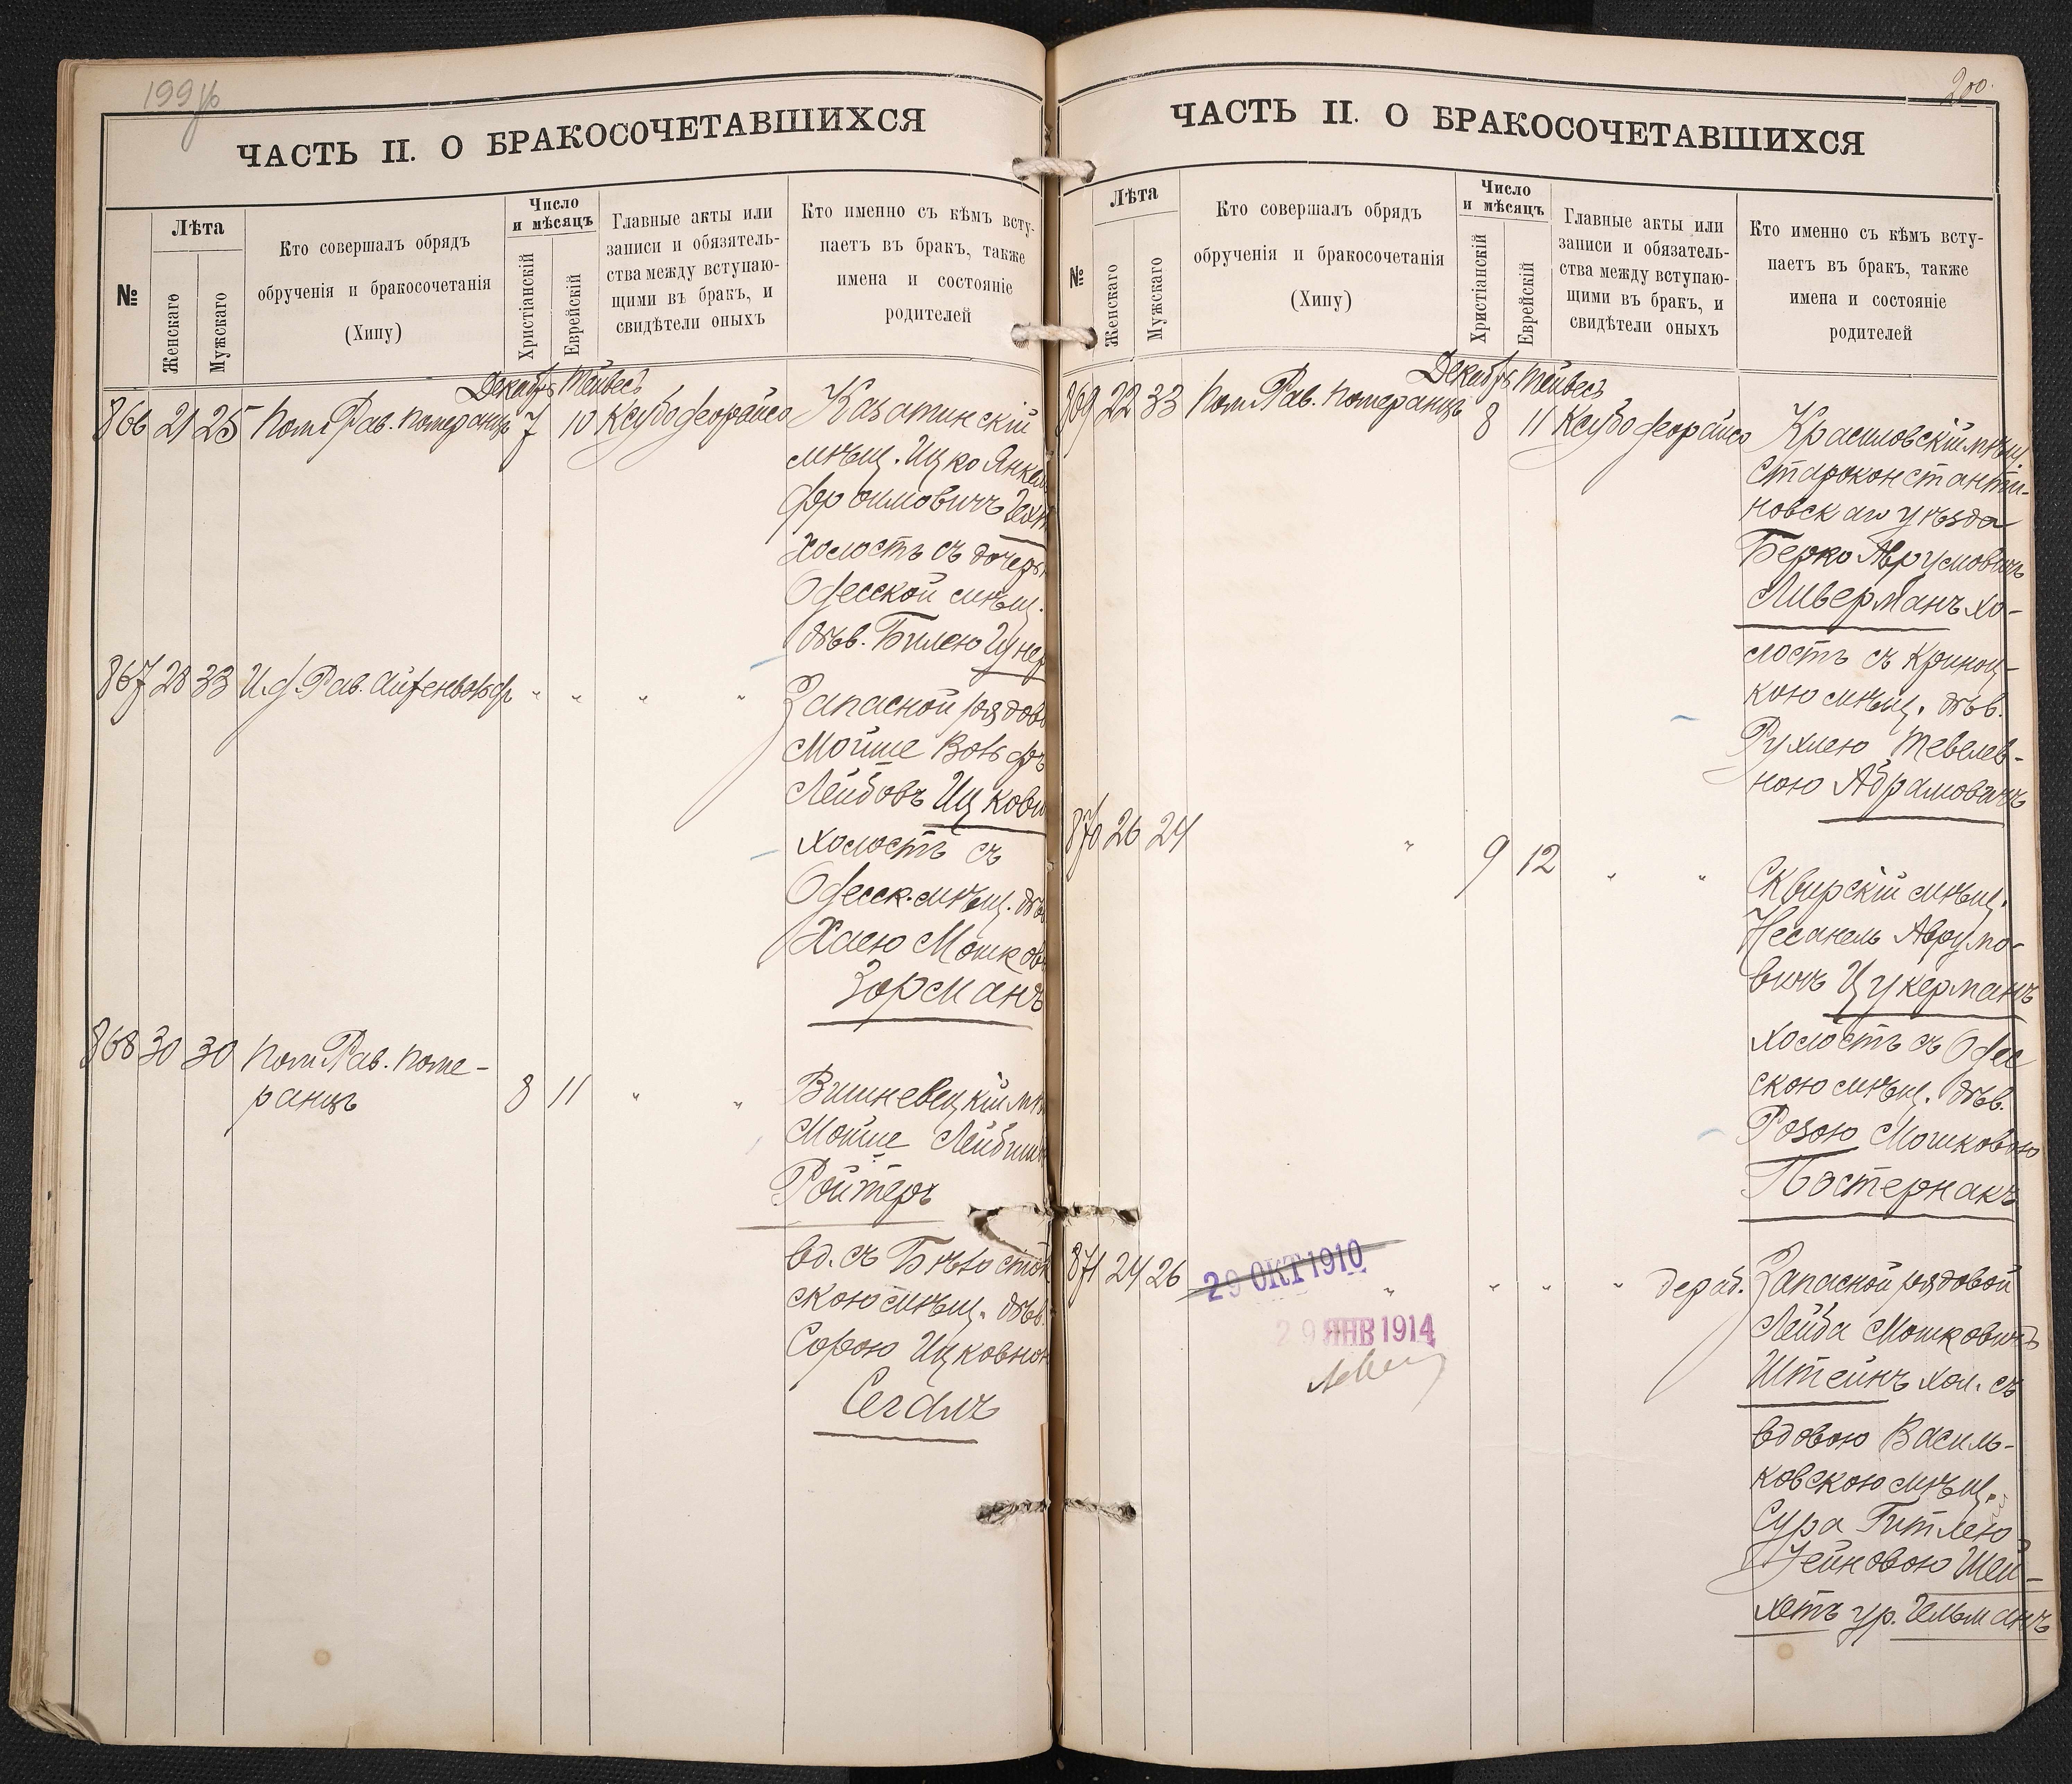 199
ЧАСТЬ II. О БРАКОСОЧЕТАВШИХСЯ
№
Лѣта
Женскаго
Мужскаго
Кто совершалъ обрядъ
обрученія и бракосочетанія
(Хипу)
Число
и мѣсяцъ
Христіанскій
Еврейскій
Главные акты или
записи и обязатель-
ства между вступаю-
щими въ бракъ, и
свидѣтели оныхъ
Кто именно съ кѣмъ всту-
паетъ въ бракъ, также
имена и состояніе
родителей
Декабрь Тейвесъ
866 21 25 Пом. Рав. Померанцъ 7 10 Ксубо деорайсо
Казатинскій
мѣщ. Ицко Янкель
Холостъ съ дочерью
Одесской мѣщ.
дѣв. Билею
867 28 33 И. д. Рав. " " " "
Запасной рядов
Мойше Вольфъ
Лейбовъ Ицкови
холостъ съ
Одесск. мѣщ. дѣв
Хаею Мошков
Зорманъ
868 30 30 Пом. Рав. Поме-
ранцъ 8 11 " "
Вишневецкій мѣ
Мойше
Ройтеръ
вд. съ Бѣлосток
скою мѣщ. дѣв.
Сорою Ицковною
Сегалъ
200.
ЧАСТЬ II. О БРАКОСОЧЕТАВШИХСЯ
№
Лѣта
Женскаго
Мужскаго
Кто совершалъ обрядъ
обрученія и бракосочетанія
(Хипу)
Число
и мѣсяцъ
Христіанскій
Еврейскій
Главные акты или
записи и обязатель-
ства между вступаю-
щими въ бракъ, и
свидѣтели оныхъ
Кто именно съ кѣмъ всту-
паетъ въ бракъ, также
имена и состояніе
родителей
Декабрь Тейвесъ
869 22 33 Пом. Рав. Померанцъ 8 11 Ксубо деорайсо
Красиловскій мѣщ.
Староконстанти-
новскаго уѣзда
Берко Аврумовичъ
Ливерманъ хо-
лостъ съ Криноц-
кою мѣщ. дѣв.
Рухлею Тевелев-
ною Абрамовичъ
870 26 24 " 9 12 " "
Сквирскій мѣщ.
Несанель Аврумо-
вичъ Цукерманъ
холостъ съ Одес
скою мѣщ. дѣв.
Розою Мошковою
Постернакъ
871 24 26 " " " "
29 ОКТ 1910
29 ЯНВ 1914
Запасной рядовой
Лейба Мошковичъ
Штейнъ хол. съ
вдовою Василь-
ковскою мѣщ.
Сура Гитлею
Шей-
хетъ ур. Гельманъ